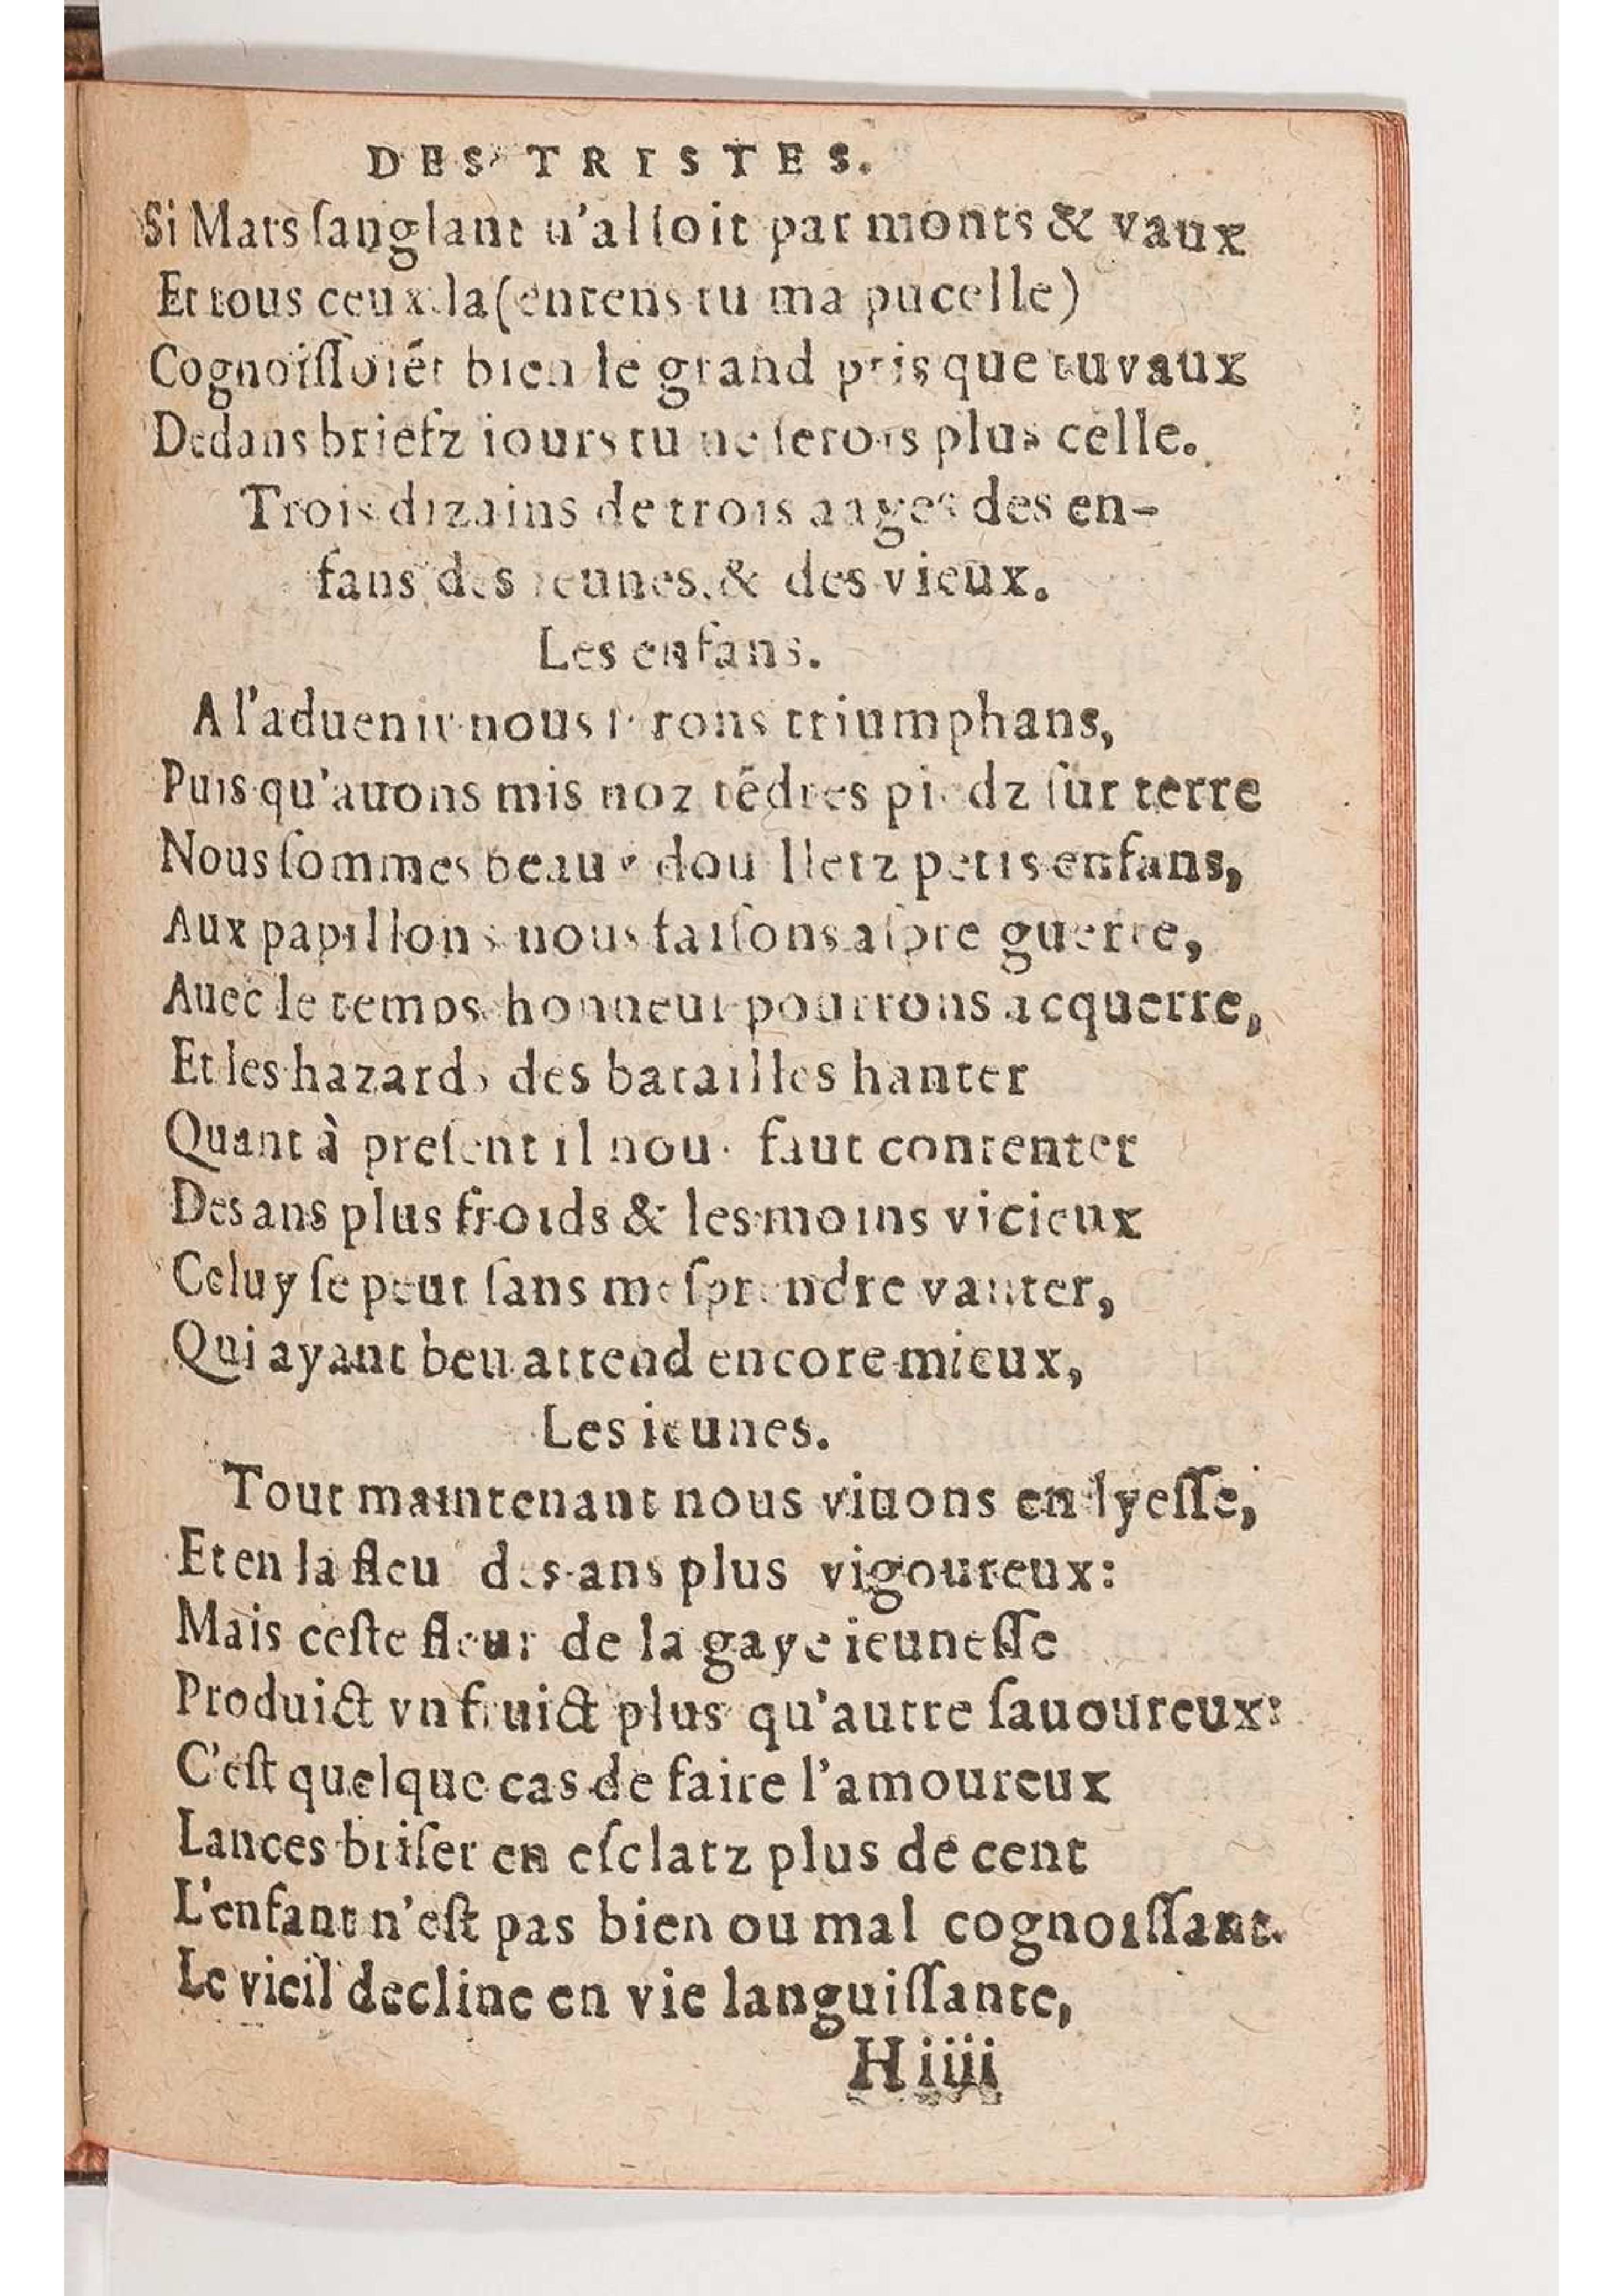 DES TRISTES.
Si Mars ſanglant n'alloit par monts & vaux
Et tous ceux la (entens tu ma pucelle)
Cognoiſſoiẽt bien le grand pris que tu vaux
Dedans briefz iours tu ne ſerois plus celle.
Trois dizains de trois aages des en-
fans des ieunes, & des vieux.
Les enfans.
A l'aduenir nous ſerons triumphans,
Puis qu'auons mis noz tẽdres piedz ſur terre
Nous ſommes beaux douilletz petis enfans,
Aux papillons nous faiſons aſpre guerre,
Auec le temps honneur pourrons acquerre,
Et les hazards des batailles hanter
Quant à preſent il nous faut contenter
Des ans plus froids & les moins vicieux
Celuy ſe peut ſans meſprendre vanter,
Qui ayant beu attend encore mieux,
Les ieunes.
Tout maintenant nous viuons en lyeſſe,
Et en la fleur des ans plus vigoureux:
Mais ceſte fleur de la gaye ieuneſſe
Produict vn fruict plus qu'autre ſauoureux:
C'eſt quelque cas de faire l'amoureux
Lances briſer en eſclatz plus de cent
L'enfant n'eſt pas bien ou mal cognoiſſant.
Le vieil decline en vie languiſſante,
H iiii